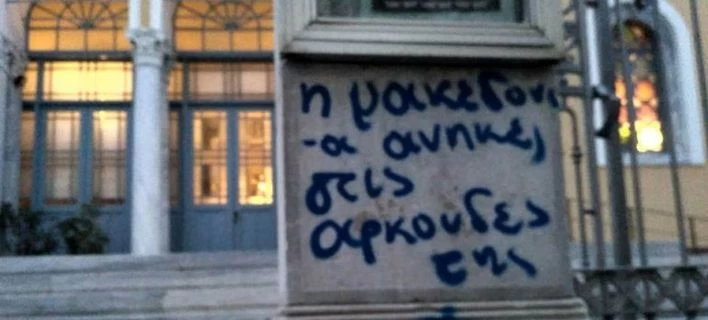 η μακεδονι
-α ανηκει
στις
αρκουδες
της